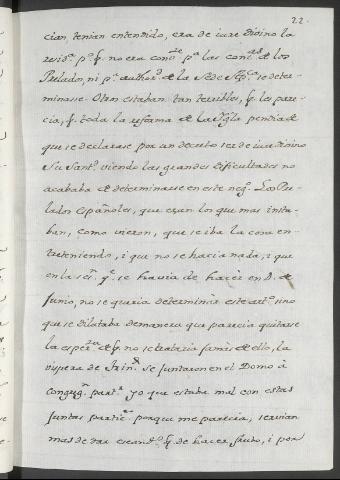 22.
cian, tenian entendido, era de iure divino la
resid.ª p.º q. no era conv.te p.ª las con de los
Prelados, ni p.ª authory.d de la Sede App.ca se deter-
minasse. Otros estaban tan terribles, q. les pare-
cia, q. toda la reforma de la Igl.ª pendia de
que se declarase por un decreto ser de iure divino
Su Sant.d viendo las grandes dificultades no
acababa de determinarse en este neg.º Los Pre-
lados españoles, que eran los que mas insta-
ban, como vieron, que se iba la cosa en-
treteniendo, i que no se hacia nada, i que
en la ses.n q.e se havia de hacer en de
Junio, no se queria determinar este art.º sino
que se dilataba de manera que parecia quitarse
la esper.za de q. no se trataria jamas de ello, la
vispera de Trin.d se juntaron en el Domo à
congreg.n part.r yo que estaba mal con estas
juntas partic.s porque me parecia, servian
mas de dar escand.º q. de hacer fruto, i por